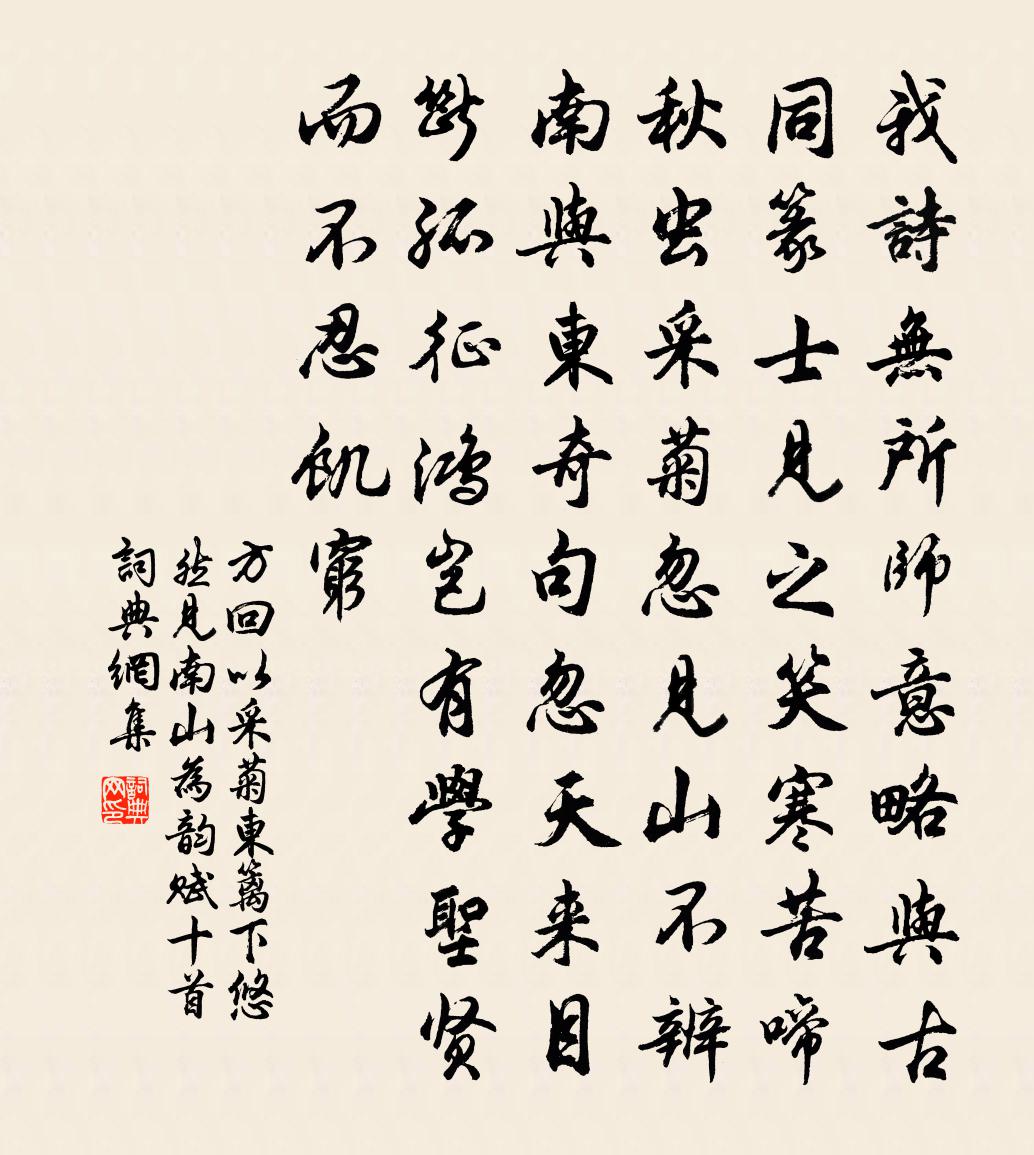 我詩無所師意略與古
同篆士見之笑寒苦啼
秋虫采菊忽見山不辨
南與東奇句忽天来目
斷孤征鸿岂有學聖贤
而不忍飢窮
方回以采菊東篱下悠
然見南山為韵赋十首
詞典網集
詞典网印